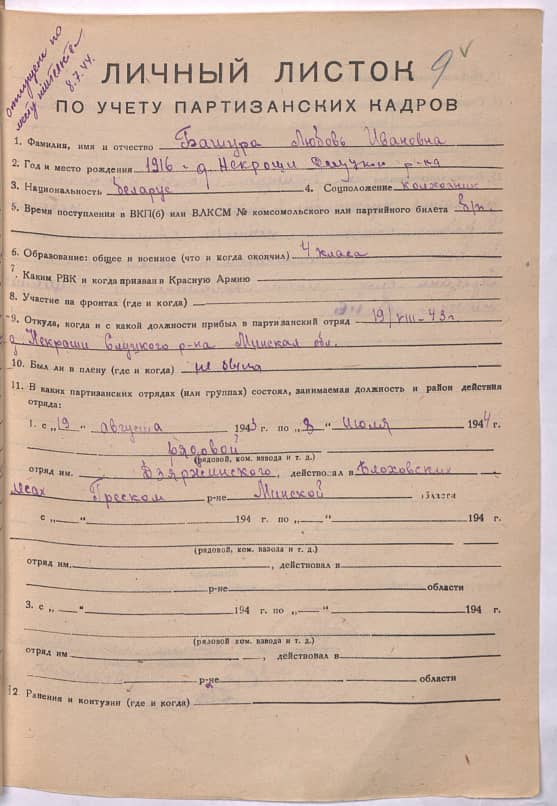 отпущен по
месту жительства
8.7.44.
9 ✓
ЛИЧНЫЙ ЛИСТОК
ПО УЧЕТУ ПАРТИЗАНСКИХ КАДРОВ
1. Фамилия, имя и отчество Башура Любовь Ивановна
2. Год и место рождения 1916 г. д. Некрощи Слуцки р-на
3. Национальность Беларус 4. Соцположение колхозник
5. Время поступления в ВКП(б) или ВЛКСМ № комсомольского или партийного билета б/п.
6. Образование: общее и военное (что и когда окончил) 4 класа
7. Каким РВК и когда призван в Красную Армию
8. Участие на фронтах (где и когда)
9. Откуда, когда и с какой должности прибыл в партизанский отряд 19/VIII-43г
д Некраши Слуцкого р-на Минская обл.
10. Был ли в плену (где и когда) не была
11. В каких партизанских отрядах (или группах) состоял, занимаемая должность и район действия
отряда:
1. с „19" августа 1943 г. по „8" июля 1944 г.
рядовой
(рядовой, ком. взвода и т. д.)
отряд им. Дзяржинского, действовал в Блоховских
лесах Греском р-не Минской области
с „ " 194 г. по „ " 194 г.
(рядовой, ком. взвода и т. д.)
отряд им. , действовал в
р-не области
3. с „ " 194 г. по „ " 194 г.
(рядовой, ком. взвода и т. д.)
отряд им , действовал в
р-не области
12 Ранения и контузии (где и когда)